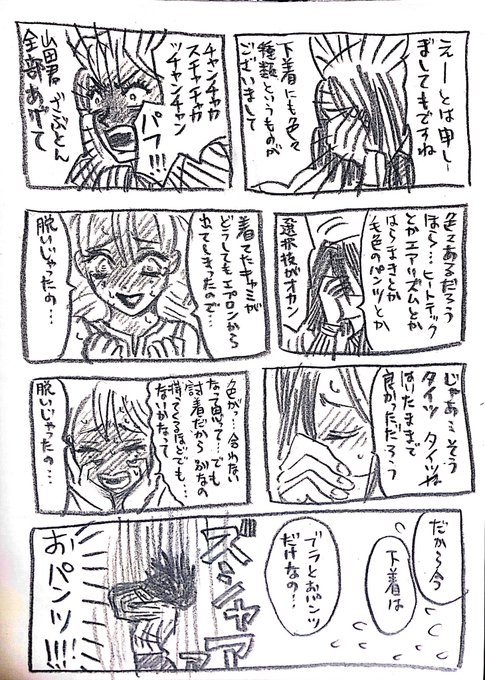 えーとは申し
ましてもですね
下着にも色々
種類というものが
ございまして
チャンチャカ
スチャチャカ
ッチャンチャン
パフ!!!
山田君ざぶとん
全部あげて
色々あるだろう
ほら…ヒートテック
とかエアリズムとか
はらまきとか
毛色のパンツとか
選択肢がオカン
着てたキャミが
どうしてもエプロンから
出てしまったので…
脱いじゃったの…
じゃあ…そう
タイツ タイツは
はいたままで
良かっただろう
色が…合わない
なって思って…でも
討着だから
持ってくるほどでも…
なってかなって
脱いじゃったの…
だから今
下着は
ブラとおパンツ
だけなの…
ズシャアア
おパンツ!!!